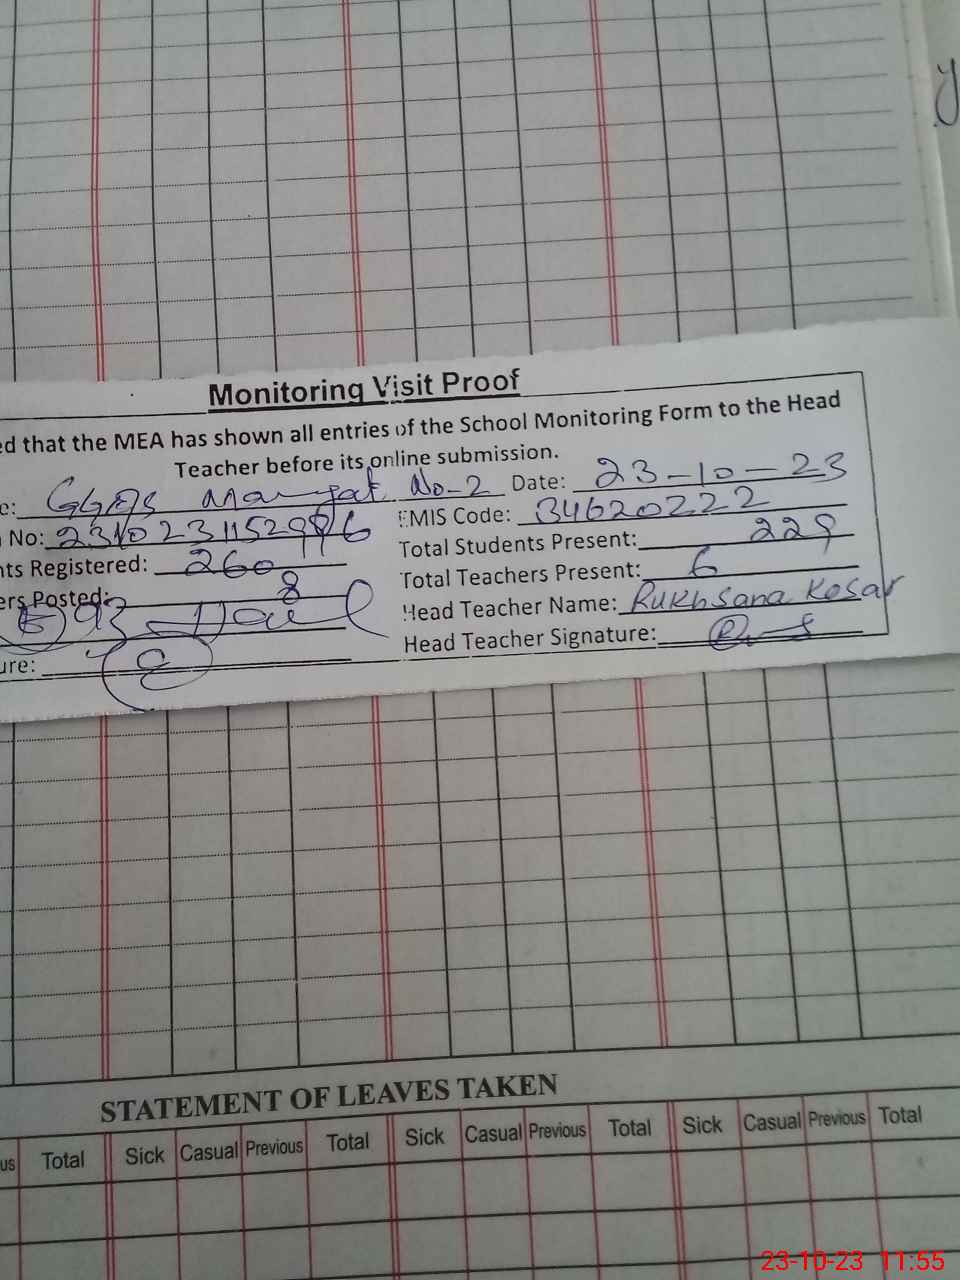 Monitoring Visit Proof
ed that the MEA has shown all entries of the School Monitoring Form to the Head
Teacher before its online submission.
e: No-2 Date: 23-10-23
No: EMIS Code: 34620222
nts Registered: 260 Total Students Present: 229
ers Posted: 8 Total Teachers Present: 6
Head Teacher Name: Rukhsana Kosar
ure: Head Teacher Signature:
STATEMENT OF LEAVES TAKEN
us Total Sick Casual Previous Total Sick Casual Previous Total Sick Casual Previous Total
23-10-23 11:55